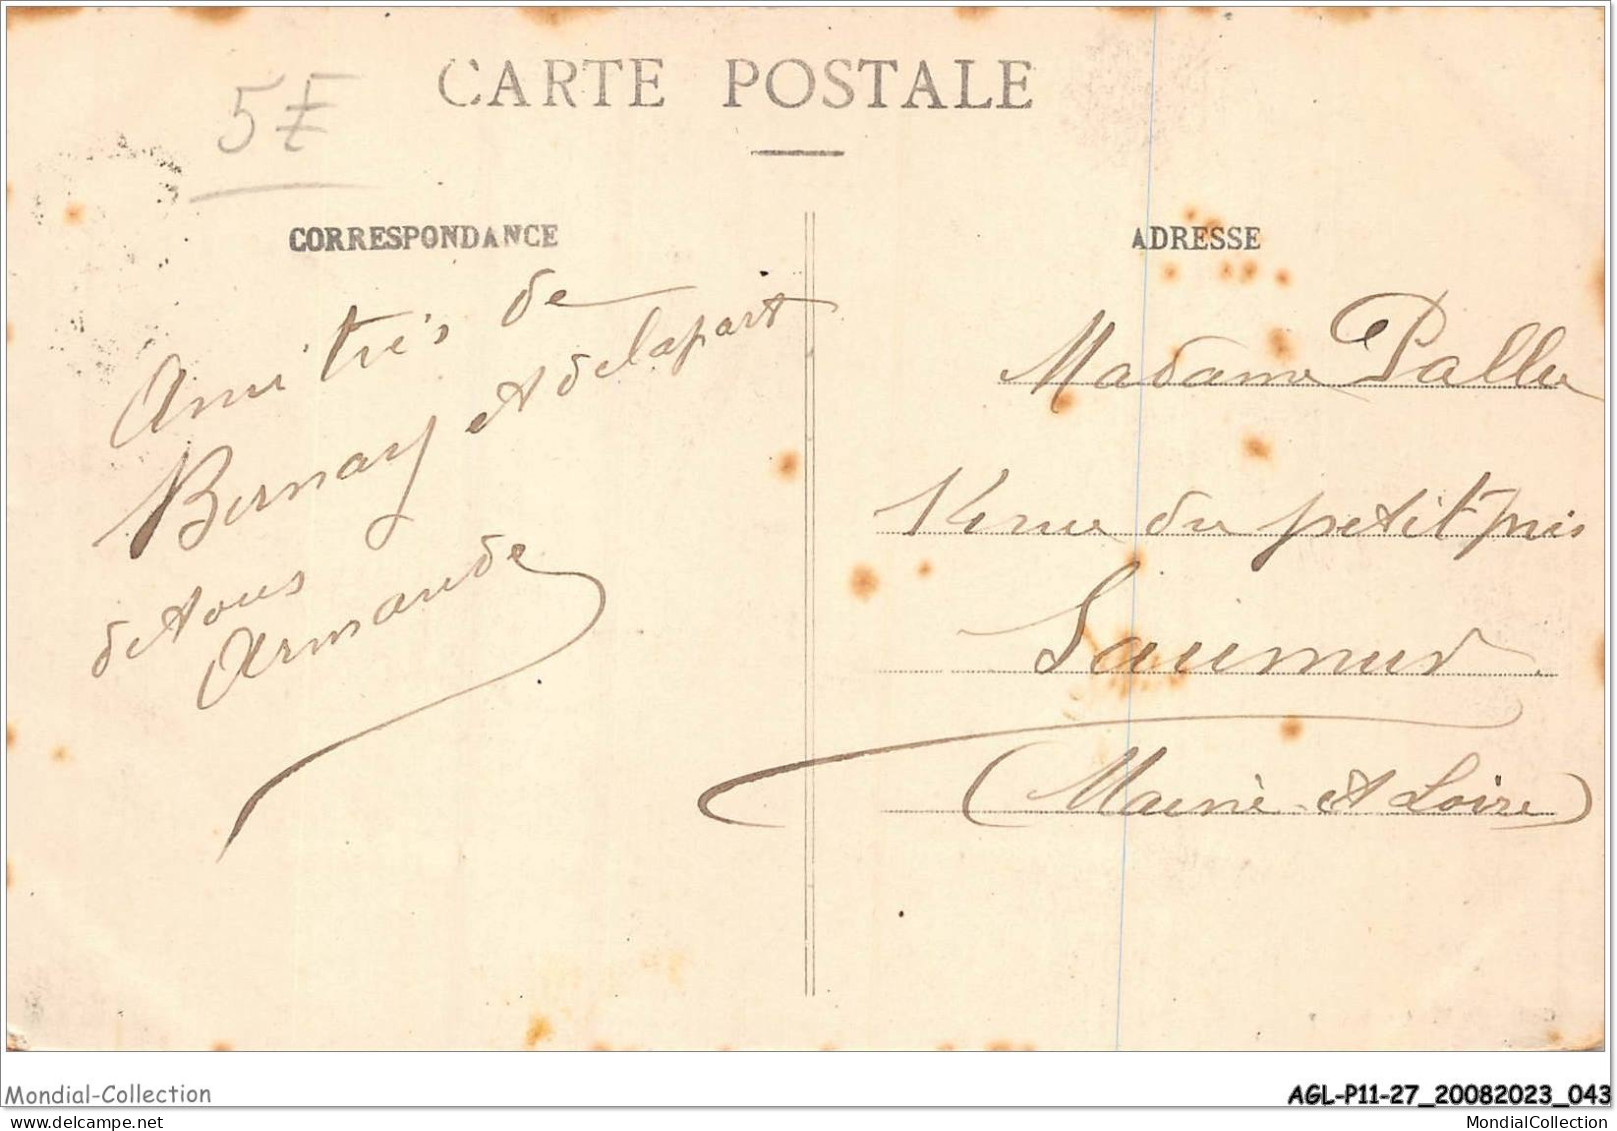 CARTE POSTALE
5F
CORRESPONDANCE
Amitiés de
Bernay et de la part
de tous
Armande
ADRESSE
Madame Pallu
rue du petit pris
Saumur
(Maine et Loire)
Mondial-Collection
AGL-P11-27_20082023_043
MondialCollection